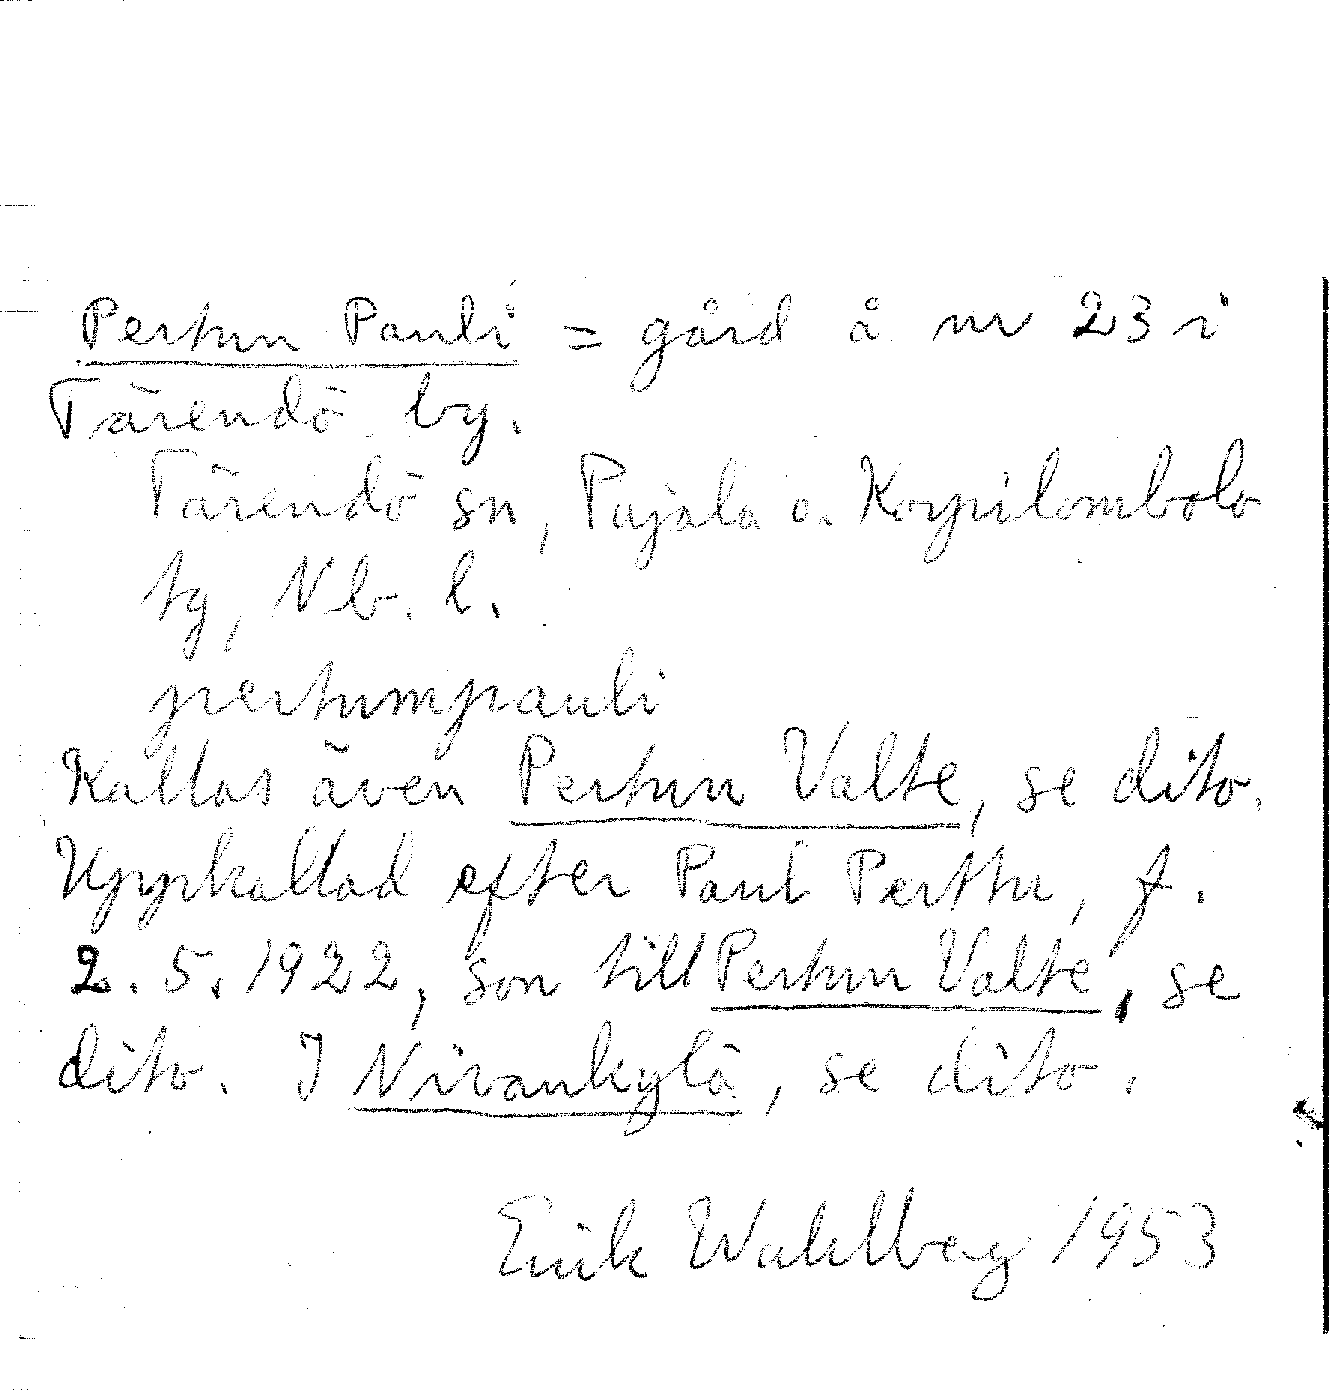 Pertun Pauli = gård å nr 23 i
Tärendö by.
Tärendö sn, Pajala o. Korpilombolo
tg, Nb. l.
pertumpauli
Kallas även Pertun Valte, se dito.
Uppkallad efter Paul Perttu, f.
2.5.1922, son till Pertun Valte, se
dito. I Nivankylä, se dito.
Erik Wahlberg 1953